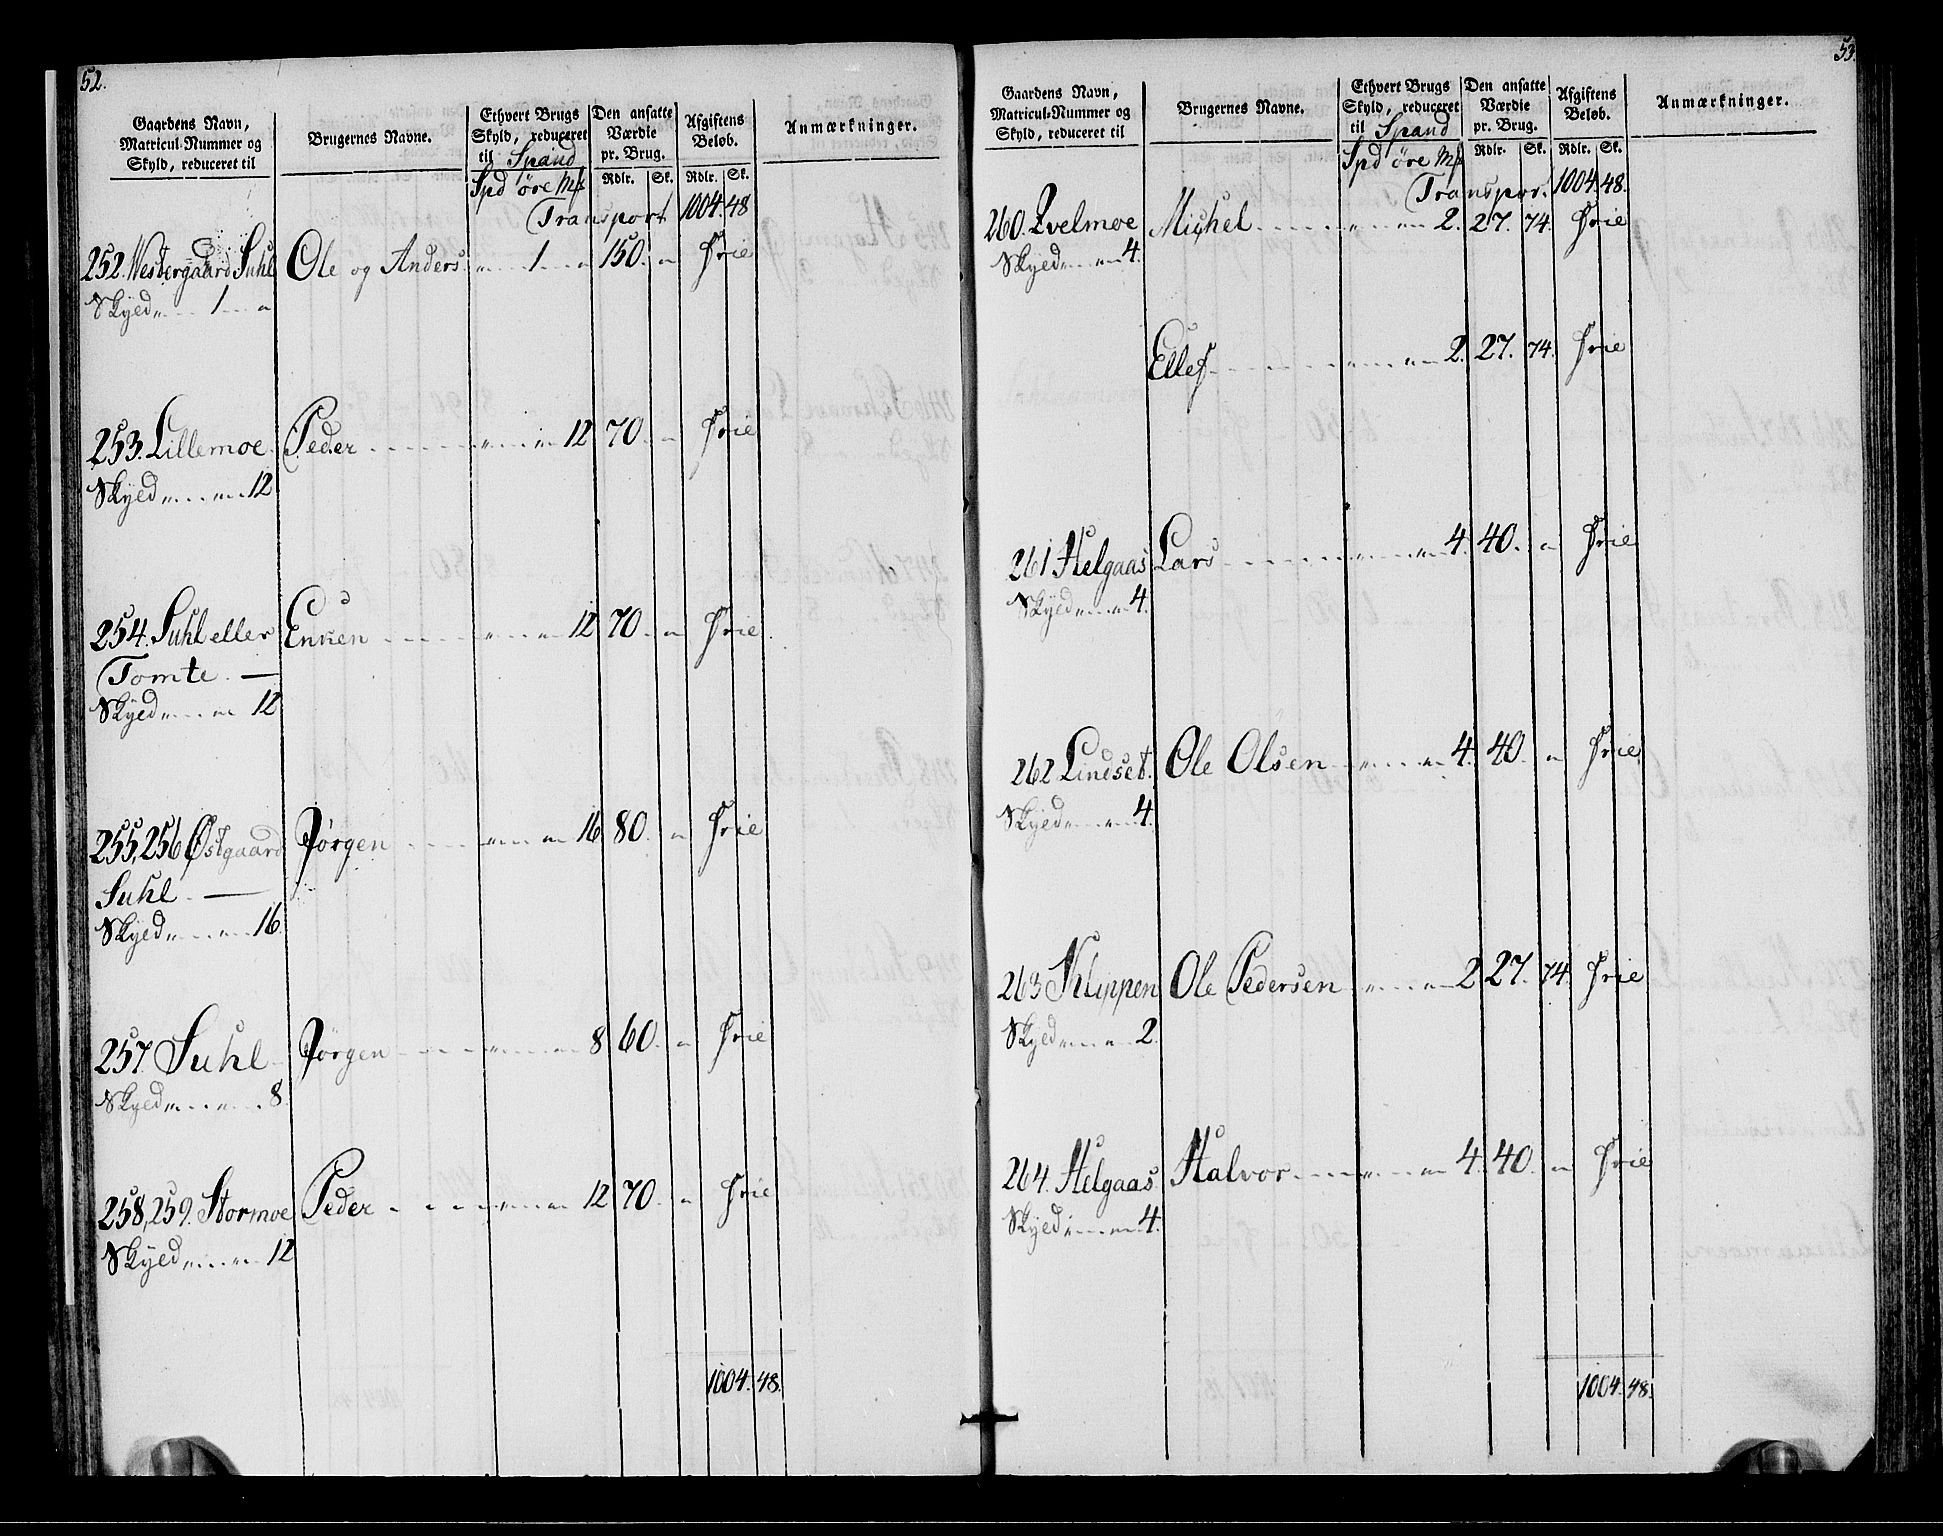 52.
Gaardens Navn, Matricul-Nummer og Skyld, reduceret til
Brugernes Navne.
Ethvert Brugs Skyld, reduceret til Spand
Spd öre Mk
Den ansatte Værdie pr. Brug.
Rdlr. Sk.
Afgiftens Beløb.
Rdlr. Sk.
Anmærkninger.
Transport 1004. 48
252. Westergaard Suhl Ole og Anders " 1 " 150. " Frie
Skyed " 1 "
253. Lillemoe Peder " " 12 70. " Frie
Skyed " " 12
254. Suhl eller Enken " " 12 70. " Frie
Tomte. —
Skyed " " 12
255, 256 Østgaard Jörgen " " 16 80. " Frie
Suhl —
Skyed " " 16.
257. Suhl Jörgen " " 8 60. " Frie
Skyed " " 8
258, 259. Stormoe Peder " " 12 70. " Frie
Skyed " " 12
1004. 48.
53.
Gaardens Navn, Matricul-Nummer og Skyld, reduceret til
Brugernes Navne.
Ethvert Brugs Skyld, reduceret til Spand
Spd öre Mk
Den ansatte Værdie pr. Brug.
Rdlr. Sk.
Afgiftens Beløb.
Rdlr. Sk.
Anmærkninger.
Transport 1004. 48.
260. Qvelmoe Michel " " 2. 27. 74. Frie
Skyed " " 4.
Ellef " " 2. 27. 74. Frie
261 Helgaas Lars " " 4. 40. " Frie
Skyed " " 4.
262 Lindset. Ole Olsen " " 4. 40. " Frie
Skyed " " 4.
263 Klippen Ole Pedersen " " 2 27. 74. Frie
Skyed " " 2.
264. Helgaas Halvor " " 4. 40. " Frie
Skyed " " 4.
1004. 48.